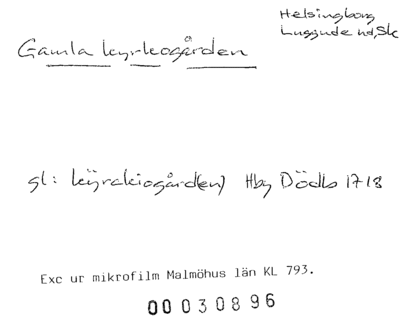 Helsingborg
Luggude hd, Sk
Gamla kyrkogården
gl: kÿrckiogård(en) Hbg Dödb 1718
Exc ur mikrofilm Malmöhus län KL 793.
00030896